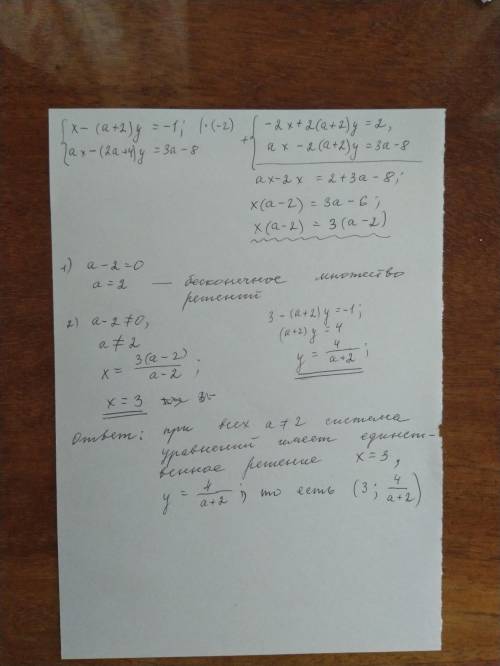 { x - (a+2)y = -1; | · (-2)
ax - (2a+4)y = 3a - 8
+ { -2x + 2(a+2)y = 2,
ax - 2(a+2)y = 3a - 8
ax - 2x = 2 + 3a - 8;
x(a-2) = 3a - 6;
x(a-2) = 3(a-2)
1) a - 2 = 0
a = 2 — бесконечное множество
решений
2) a - 2 ≠ 0,
a ≠ 2
x = 3(a-2)/(a-2);
x = 3
3 - (a+2)y = -1;
(a+2)y = 4
y = 4/(a+2);
Ответ: при всех a ≠ 2 система
уравнений имеет единст-
венное решение x = 3,
y = 4/(a+2); то есть (3; 4/(a+2))